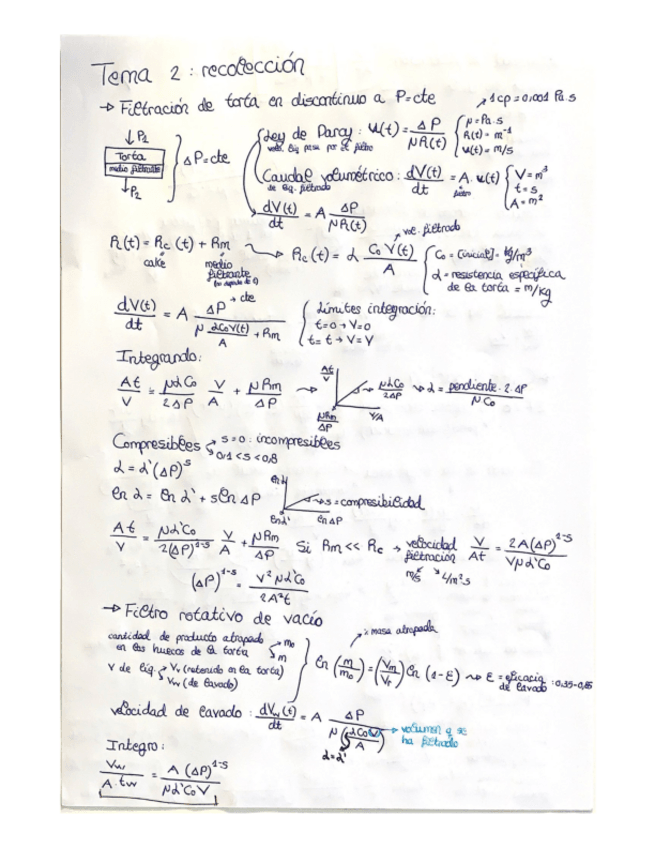 Tema 2: recolección
→ Filtración de torta en discontinuo a P=cte
1cp = 0,001 Pa.s
↓P₁
Torta
medio filtrante
↓P₂
ΔP=cte
Ley de Darcy: u(t) = ΔP / μR(t)
μ = Pa.s
R(t) = m⁻¹
u(t) = m/s
Caudal volumétrico: dV(t)/dt = A. u(t)
de líq. filtrado
V = m³
t = s
A = m²
dV(t)/dt = A ΔP / μR(t)
R(t) = Rc(t) + Rm
cake
medio filtrante
Rc(t) = α C₀ V(t) / A
vol. filtrado
C₀ = [inicial] = kg/m³
α = resistencia específica
de la torta = m/kg
dV(t)/dt = A ΔP → cte / μ αC₀V(t)/A + Rm
Límites integración:
t=0 → V=0
t=t → V=V
Integrando:
At/V = μαC₀/2ΔP V/A + μRm/ΔP →
At/V
μαC₀/2ΔP
μRm/ΔP
V/A
α = pendiente · 2 ΔP / μC₀
Compresibles
s=0: incompresibles
0,1 < s < 0,8
α = α'(ΔP)ˢ
ln α = ln α' + s ln ΔP
ln α
s = compresibilidad
ln α'
ln ΔP
At/V = μα'C₀/2(ΔP)¹⁻ˢ V/A + μRm/ΔP
Si Rm << Rc → velocidad filtración V/At = 2A(ΔP)¹⁻ˢ / Vμα'C₀
m/s
L/m²s
(ΔP)¹⁻ˢ = V²μα'C₀ / 2A²t
→ Filtro rotativo de vacío
cantidad de producto atrapado
en los huecos de la torta
m₀
m
V de líq.
Vr (retenido en la torta)
Vw (de lavado)
% masa atrapada
ln (m/m₀) = (Vw/Vr) ln (1-E) → E = eficacia
de lavado
: 0,35-0,85
velocidad de lavado: dVw(t)/dt = A ΔP / μ (αC₀V/A)
→ volumen q se
ha filtrado
α=α'
Integro:
Vw / A.tw = A (ΔP)¹⁻ˢ / μα'C₀V